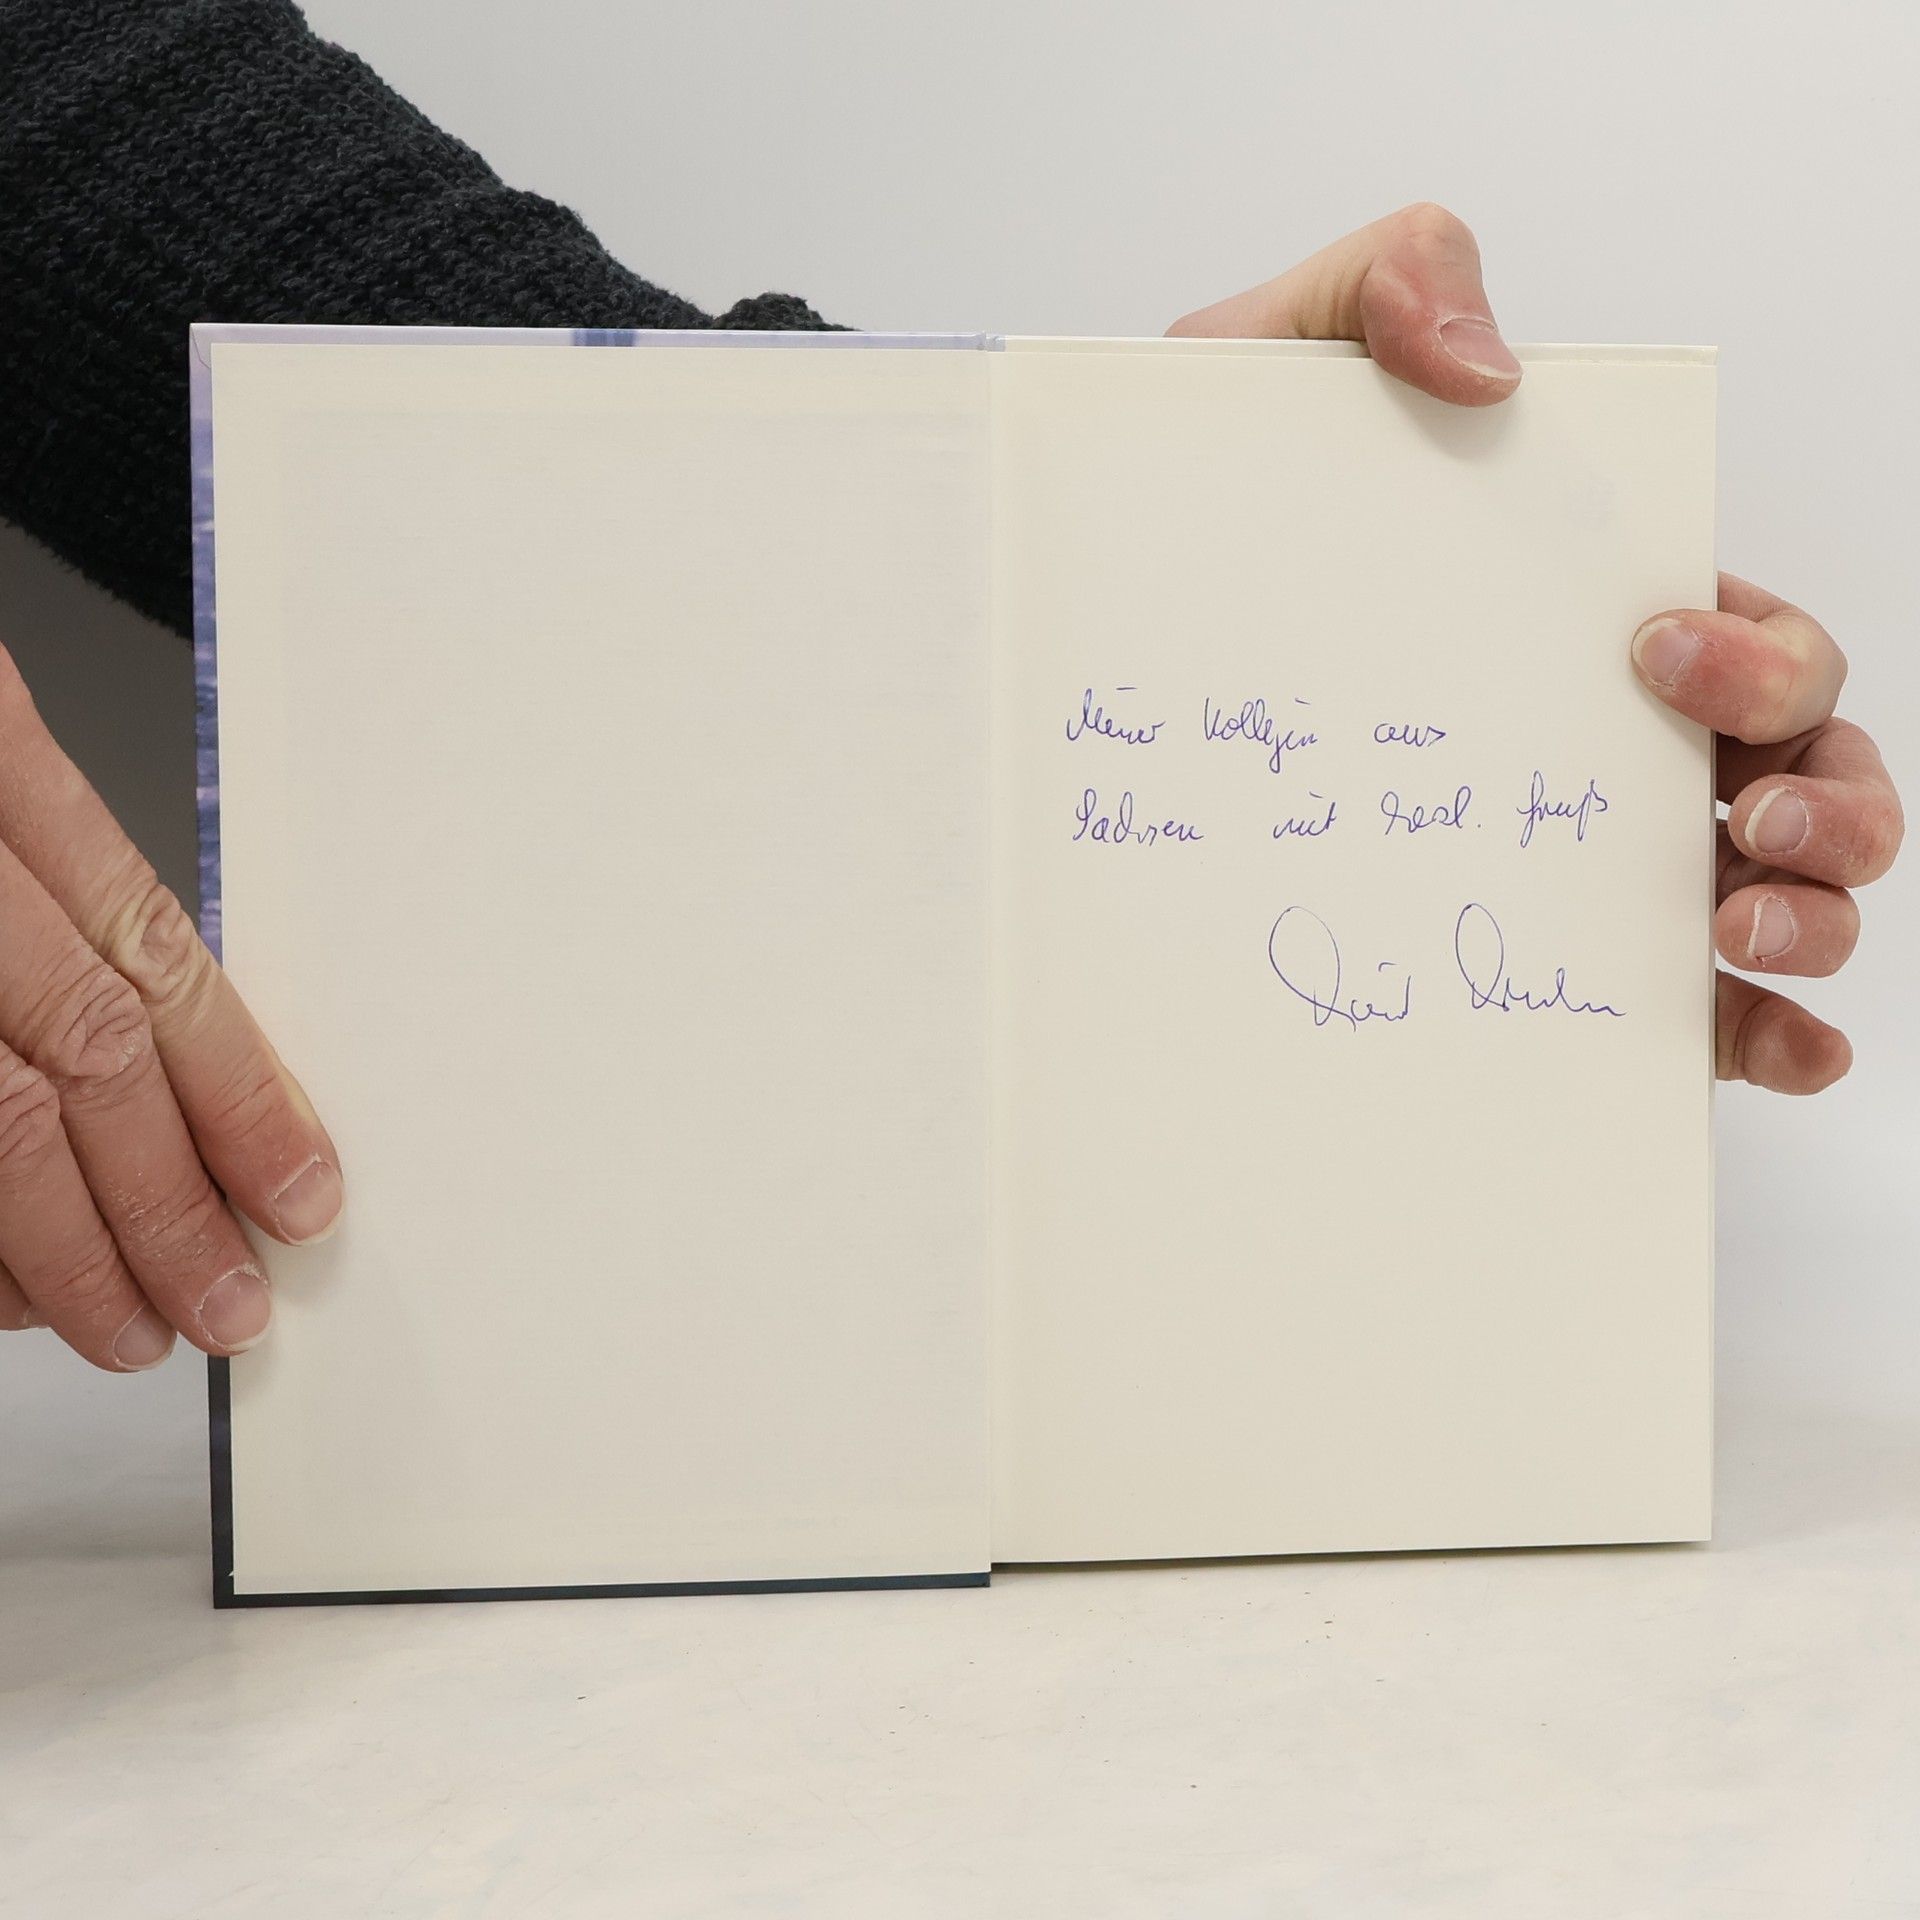 Meiner Kollegin aus
Sachsen mit herzl. Gruß